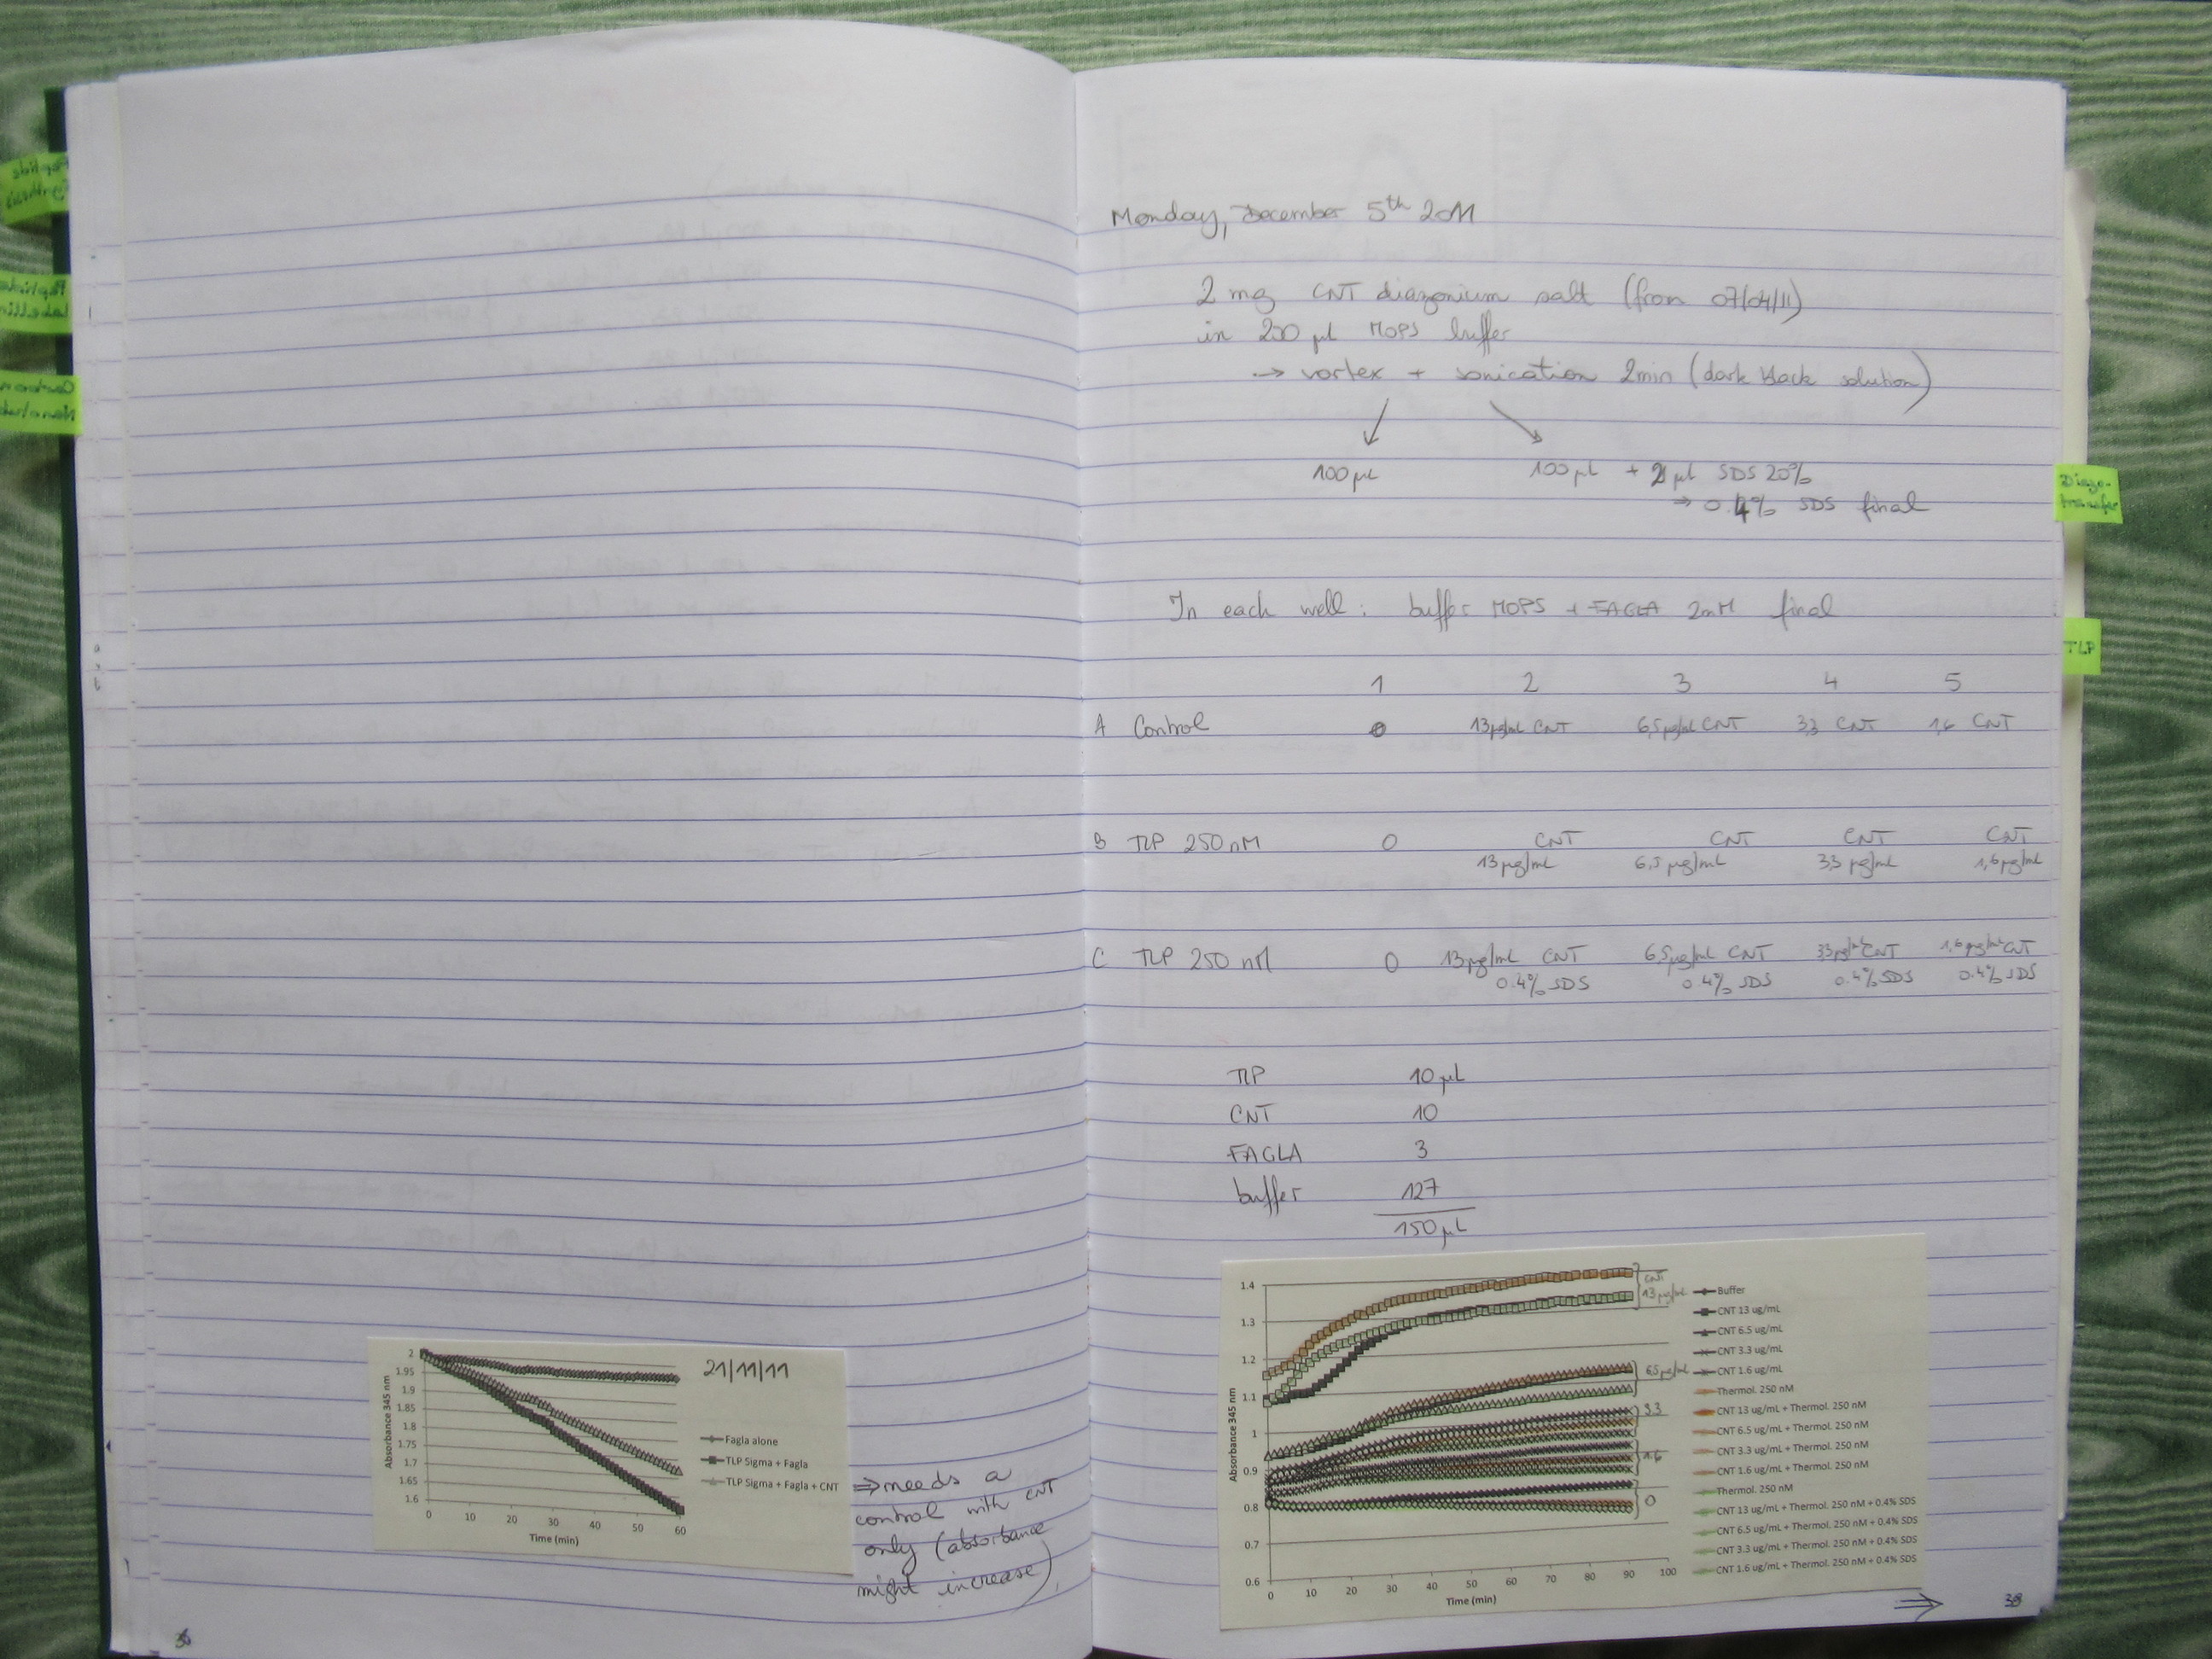 2
1.95
1.9
1.85
1.8
1.75
1.7
1.65
1.6
0 10 20 30 40 50 60
Absorbance 345 nm
Time (min)
21/11/11
Fagla alone
TLP Sigma + Fagla
TLP Sigma + Fagla + CNT
⇒ needs a
control with CNT
only (absorbance
might increase)
Monday, December 5th 2011
2 mg CNT diazonium salt (from 07/04/11)
in 200 µl MOPS buffer
→ vortex + sonication 2min (dark black solution)
100 µL 100 µL + 2 µL SDS 20%
⇒ 0.4% SDS final
In each well: buffer MOPS + FAGLA 2mM final
1 2 3 4 5
A Control 0 13µg/mL CNT 6,5µg/mL CNT 3,3 CNT 1,6 CNT
B TLP 250 nM 0 CNT CNT CNT CNT
13 µg/mL 6,5 µg/mL 3,3 µg/mL 1,6 µg/mL
C TLP 250 nM 0 13µg/mL CNT 6,5µg/mL CNT 3,3µg/mL CNT 1,6 µg/mL CNT
0.4% SDS 0.4% SDS 0.4% SDS 0.4% SDS
TLP 10 µL
CNT 10
FAGLA 3
buffer 127
150 µL
1.4
1.3
1.2
1.1
1
0.9
0.8
0.7
0.6
0 10 20 30 40 50 60 70 80 90 100
Absorbance 345 nm
Time (min)
CNT
13 µg/mL
6.5 µg/mL
3.3
1.6
0
Buffer
CNT 13 ug/mL
CNT 6.5 ug/mL
CNT 3.3 ug/mL
CNT 1.6 ug/mL
Thermol. 250 nM
CNT 13 ug/mL + Thermol. 250 nM
CNT 6.5 ug/mL + Thermol. 250 nM
CNT 3.3 ug/mL + Thermol. 250 nM
CNT 1.6 ug/mL + Thermol. 250 nM
Thermol. 250 nM
CNT 13 ug/mL + Thermol. 250 nM + 0.4% SDS
CNT 6.5 ug/mL + Thermol. 250 nM + 0.4% SDS
CNT 3.3 ug/mL + Thermol. 250 nM + 0.4% SDS
CNT 1.6 ug/mL + Thermol. 250 nM + 0.4% SDS
⇒ 38
Diazo-
transfer
TLP